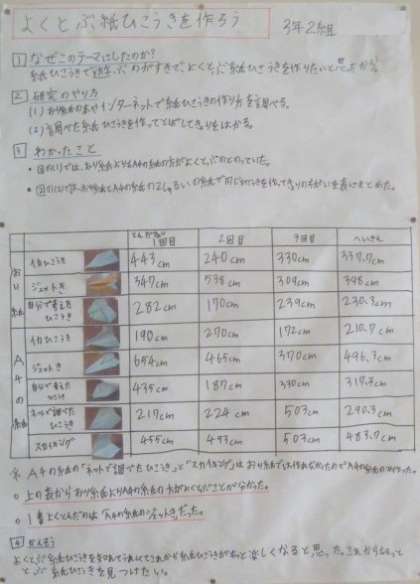 よくとぶ紙ひこうきを作ろう 3年2組
1 なぜこのテーマにしたのか?
紙ひこうきで遊ぶのがすきで、よくとぶ紙ひこうきを作りたいと思ったから。
2 研究のやり方
(1) インターネットで紙ひこうきの作り方を調べる。
(2) 調べた紙ひこうきを作ってとばしてきょりをはかる。
3 わかったこと
おり紙よりA4の紙の方がよくとんでいた。
1回目 2回目 3回目 へいきん
おり紙
イカひこうき 443cm 240cm 330cm 337.7cm
ジェットき 347cm 538cm 309cm 398cm
自分で考えたひこうき 282cm 170cm 239cm 230.3cm
A4の紙
イカひこうき 190cm 270cm 172cm 210.7cm
ジェットき 654cm 465cm 370cm 496.3cm
自分で考えたひこうき 435cm 187cm 330cm 317.3cm
ネットで調べたひこうき 217cm 224cm 503cm
スカイキング 455cm 493cm 503cm 483.7cm
※ A4の紙の「ネットで調べたひこうき」と「スカイキング」はおり紙では作れなかったのでA4の紙のみ作った。
○ 上の表からおり紙よりA4の紙の方がよくとぶことが分かった。
○ 1番よくとんだのは「A4の紙のジェットき」だった。
4 かんそう
よくとぶ紙ひこうきを これから紙ひこうきがもっと楽しくなると思った。これからもっと
とぶ紙ひこうきを見つけたい。